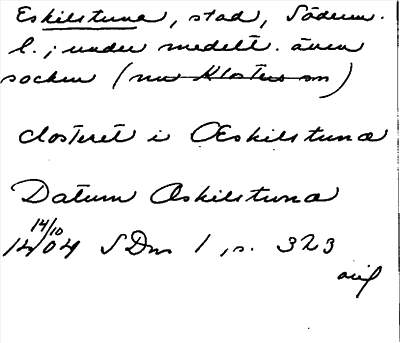 Eskilstuna, stad, Söderm.
l.; under medelt. även
socken (nu Klosters sn)
closteret i Æskilstuna
Datum Øskilstuna
14/10
1404 SDns 1, s. 323
orig